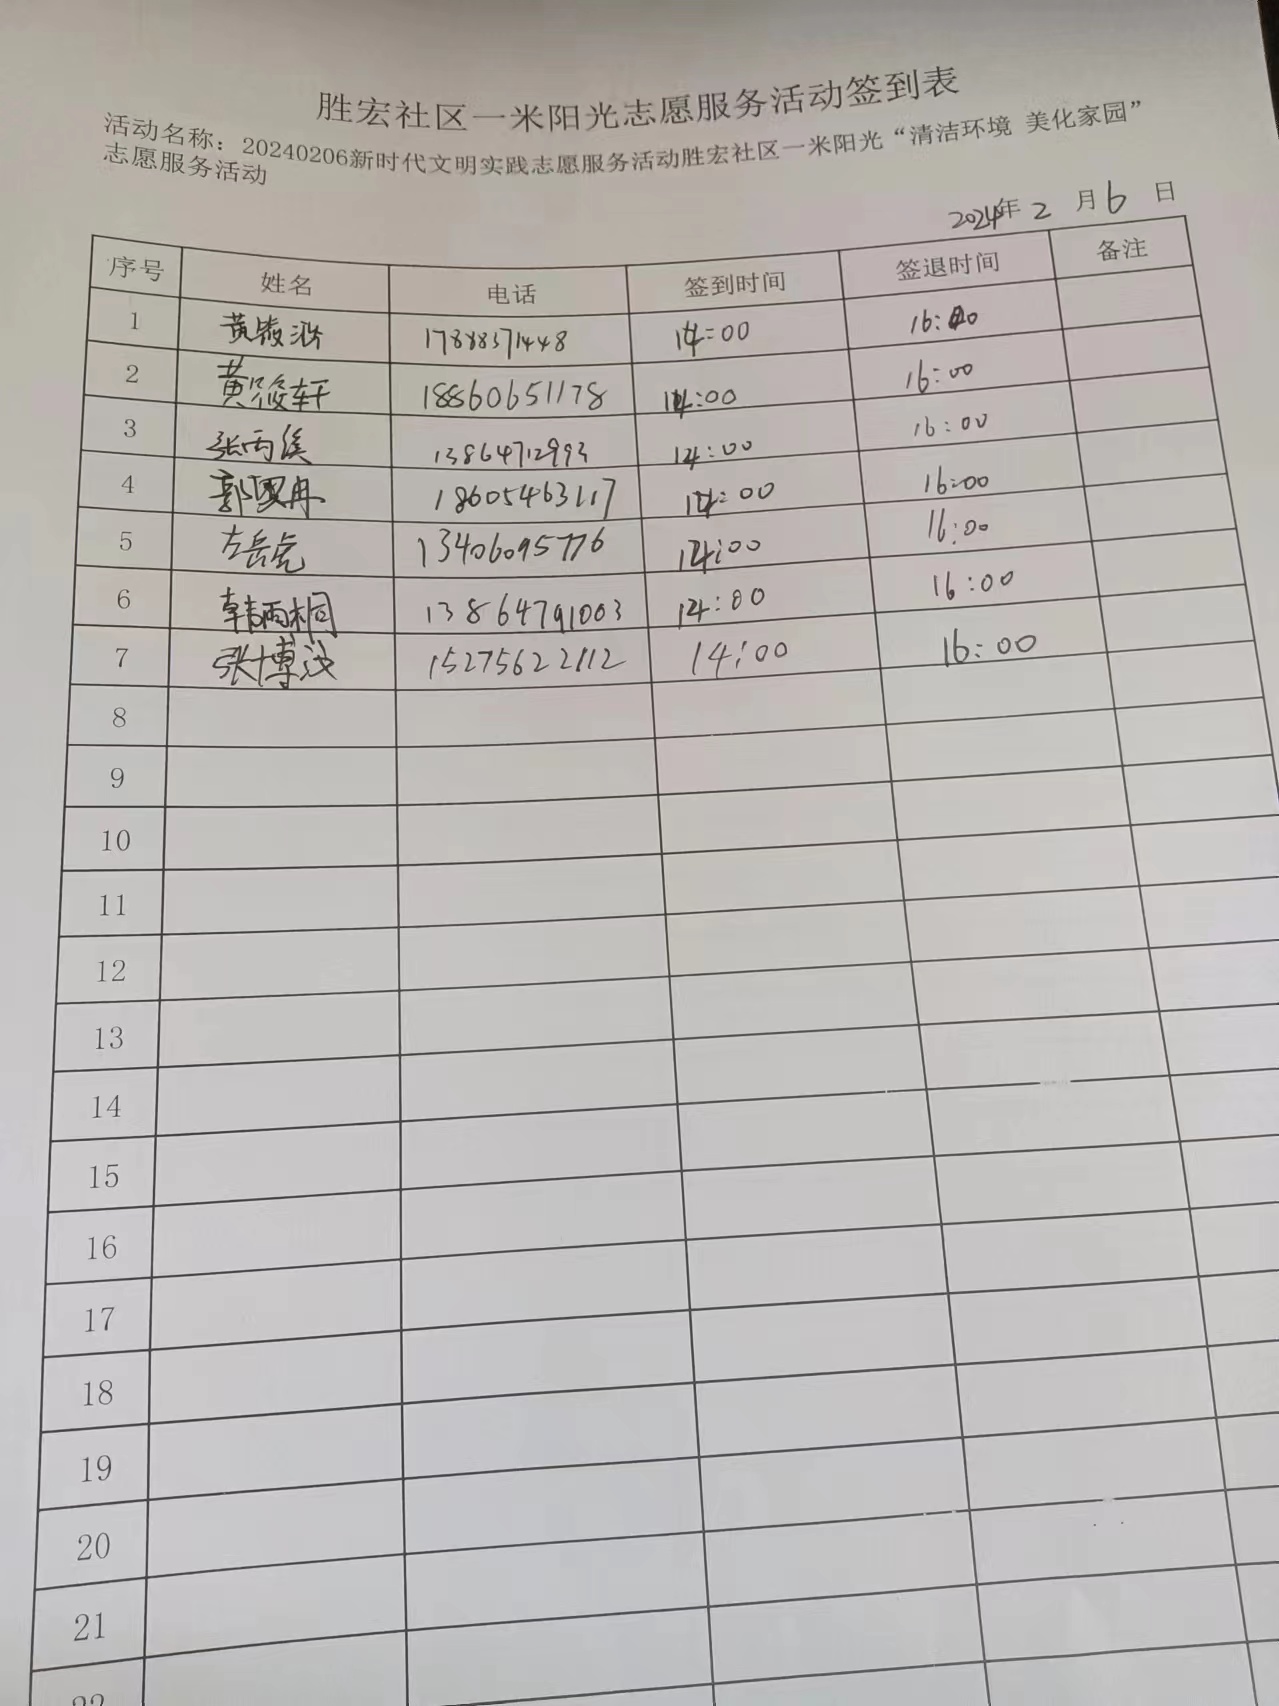 胜宏社区一米阳光志愿服务活动签到表
活动名称：20240206新时代文明实践志愿服务活动胜宏社区一米阳光“清洁环境 美化家园”
志愿服务活动
2024年 2 月 6 日
序号 姓名 电话 签到时间 签退时间 备注
1 黄 17888371448 14:00 16:00
2 黄筱轩 18860651178 14:00 16:00
3 张雨溪 13864712993 14:00 16:00
4 郭 18605463117 14:00 16:00
5 左岳虎 13406095776 14:00 16:00
6 韩雨桐 13864791003 14:00 16:00
7 张博 15275622112 14:00 16:00
8
9
10
11
12
13
14
15
16
17
18
19
20
21
22